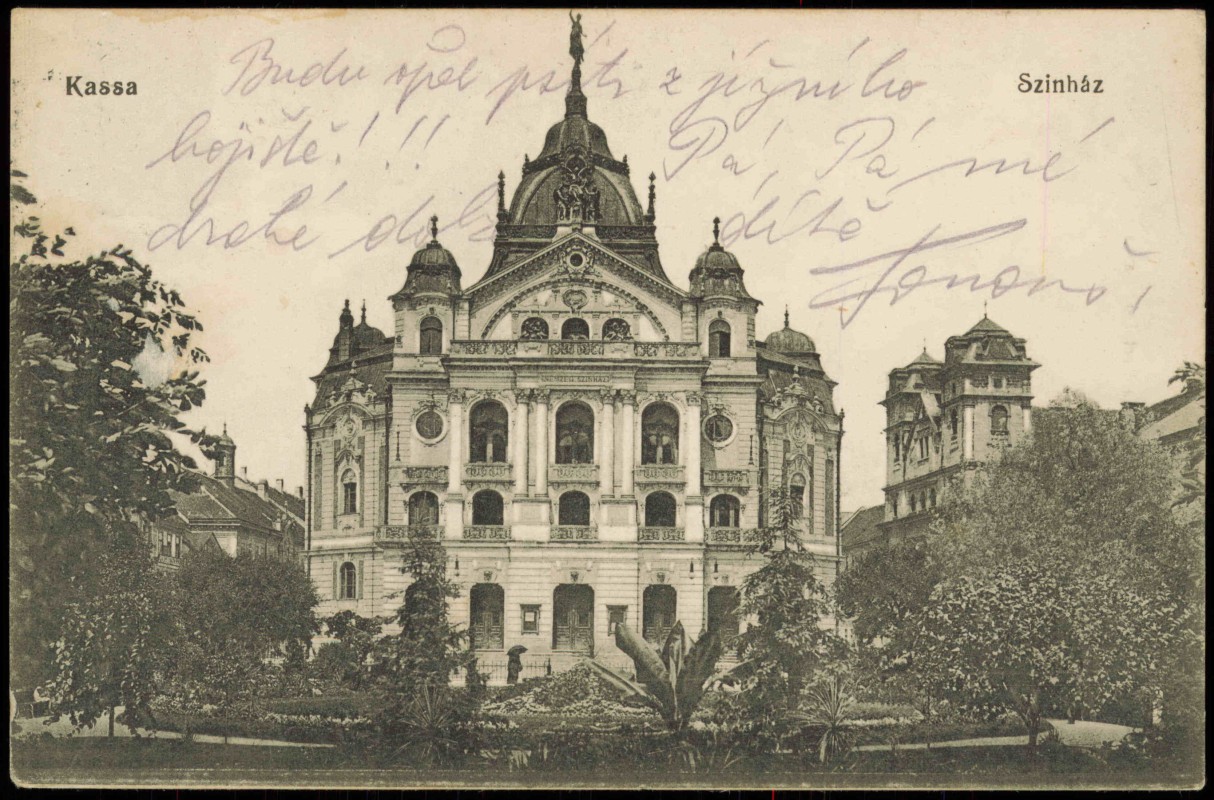 Kassa
Szinház
Budu opět psáti z jižního
bojiště! !!
Pá, Pá, mé
drahé dítě
NEMZETI SZINHÁZ